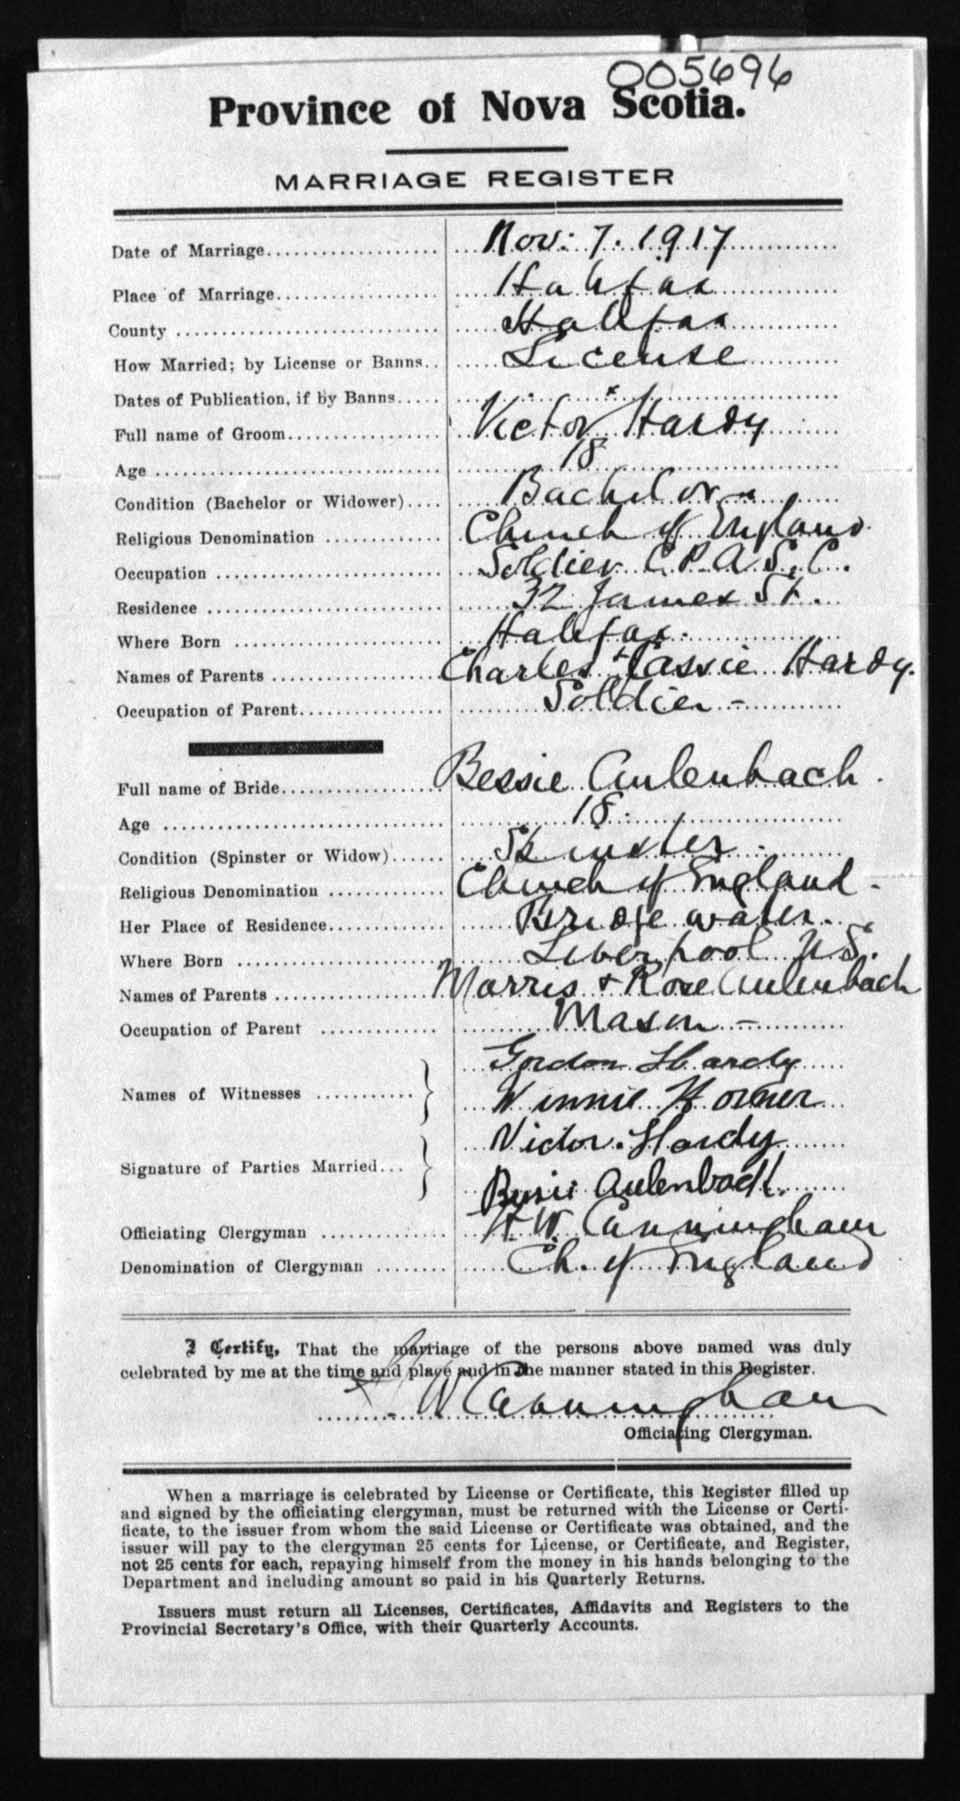 005696
Province of Nova Scotia.
MARRIAGE REGISTER
Date of Marriage Nov: 7. 1917
Place of Marriage Halifax
County Halifax
How Married; by License or Banns License
Dates of Publication, if by Banns
Full name of Groom Victor Hardy
Age 18
Condition (Bachelor or Widower) Bachelor
Religious Denomination Church of England
Occupation Soldier C.P.A.S.C.
Residence 32 James St.
Where Born Halifax.
Names of Parents Charles + Cassie Hardy.
Occupation of Parent Soldier -
Full name of Bride Bessie Aulenbach.
Age 18.
Condition (Spinster or Widow) Spinster
Religious Denomination Church of England -
Her Place of Residence Bridgewater.
Where Born Liverpool N.S.
Names of Parents Morris + Rose Aulenbach
Occupation of Parent Mason -
Gordon Hardy
Names of Witnesses Winnie Horner
Victor. Hardy
Signature of Parties Married
Bessie Aulenbach.
Officiating Clergyman H W. Cunningham
Denomination of Clergyman Ch. of England
I Certify, That the marriage of the persons above named was duly
celebrated by me at the time and place and in the manner stated in this Register.
H. W Cunningham
Officiating Clergyman.
When a marriage is celebrated by License or Certificate, this Register filled up
and signed by the officiating clergyman, must be returned with the License or Certi-
ficate, to the issuer from whom the said License or Certificate was obtained, and the
issuer will pay to the clergyman 25 cents for License, or Certificate, and Register,
not 25 cents for each, repaying himself from the money in his hands belonging to the
Department and including amount so paid in his Quarterly Returns.
Issuers must return all Licenses, Certificates, Affidavits and Registers to the
Provincial Secretary's Office, with their Quarterly Accounts.